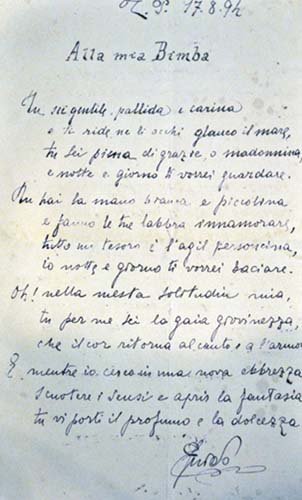 17.8.94
Alla mia Bimba
Tu sei gentile, pallida e carina
e ti ride ne li occhi glauco il mare,
tu sei piena di grazie, o madonnina,
e notte e giorno ti vorrei guardare.
Tu hai la mano bianca e piccolina
e fanno le tue labbra innamorare,
tutto un tesoro è l'agil personcina,
io notte e giorno ti vorrei baciare.
Oh! nella mesta solitudin mia,
tu per me sei la gaia giovinezza,
che il cor ritorna al canto e a l'armo
E mentre io cerco in una nova ebbrezza
scuotere i sensi e aprir la fantasia
tu vi porti il profumo e la dolcezza
Guido